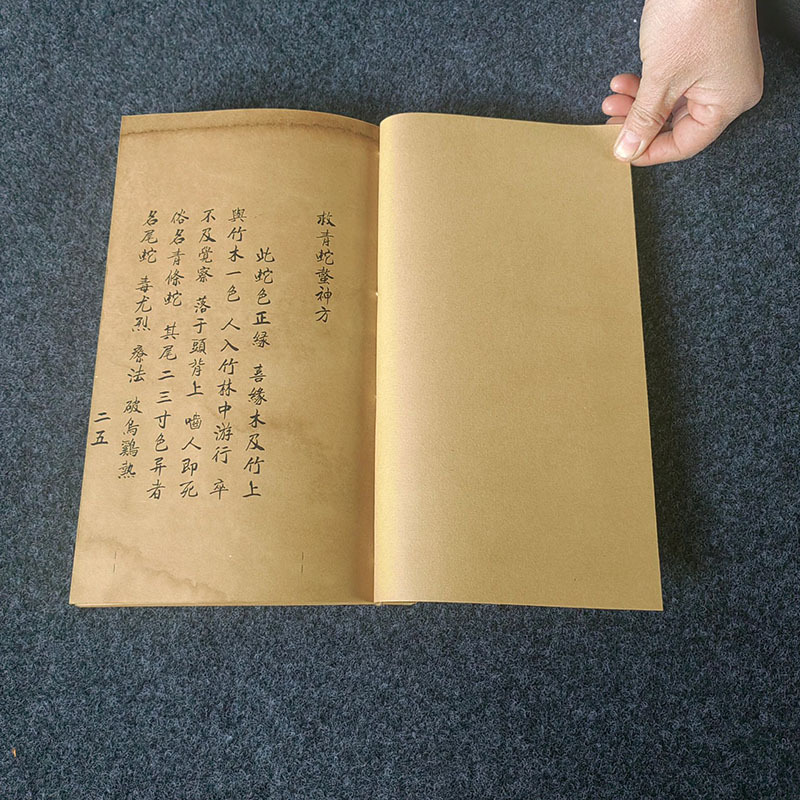 救青蛇螫神方
此蛇色正緑 喜緣木及竹上
與竹木一色 人入竹林中游行 卒
不及覺察 落于頭背上 嚙人即死
俗名青條蛇 其尾二三寸色异者
名尾蛇 毒尤烈 療法 破烏鷄熱
二五